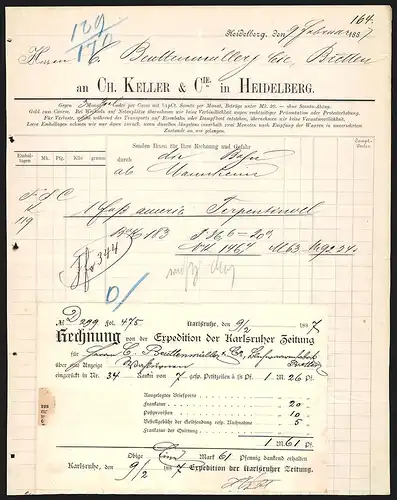 164.
129
Heidelberg, den 9 Februar 1887
Herrn C. Beuttenmüller & Cie, Bretten
an CH. KELLER & CIE. in HEIDELBERG.
Gegen Monat oder per Cassa mit Sconto per Monat, Beträge unter Mk. 20. — ohne Sconto-Abzug.
Geld zum Courss. Bei Wechseln auf Nebenplätze übernehmen wir keine Verbindlichkeit wegen rechtzeitiger Präsentation oder Protesterhebung.
Für Verluste, welche während des Transports auf Eisenbahn oder Dampfboot entstehen, übernehmen wir keine Verantwortlichkeit.
Leere Emballagen nehmen wir nur dann zurück, wenn dieselben längstens innerhalb zwei Monaten nach Empfang der Waaren in unversehrtem
Zustande an uns gelangen.
Emballagen Mk. Pfg. Kilo
Senden Ihnen für Ihre Rechnung und Gefahr
durch die Bahn
ab Mannheim
119
1 Faß americ. Terpentinoel
183
M 63 M 92 24
344
№ D 299 Fol. 475 Karlsruhe, den 9/2 1887
Rechnung von der Expedition der Karlsruher Zeitung
für Herrn C. Beuttenmüller & Co,
Bretten
über eine Anzeige
eingerückt in Nr. 34 7 gesp. Petitzeilen à Pf. 1 M. 26 Pf.
Ausgelegtes Briefporto
Frankatur 20
Postprovision 10
Bestellgebühr der Geldsendung resp. Nachnahme 5
Frankatur der Quittung
1 M. 61 Pf.
Obige Ein Mark 61 Pfennig dankend erhalten
Karlsruhe, den 9/2 1887 Expedition der Karlsruher Zeitung.